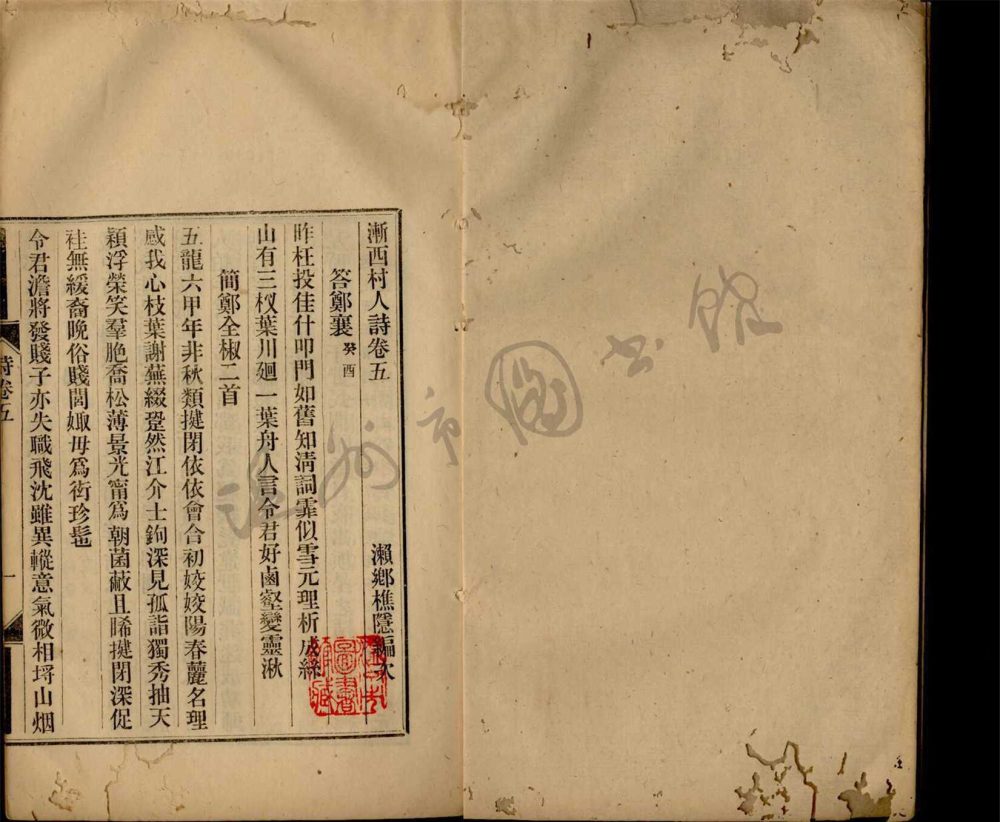 漸西村人詩卷五
瀨鄉樵隱編次
答鄭襄 癸酉
昨枉投佳什叩門如舊知淸詞霏似雪元理析成絲
山有三杈葉川廻一葉舟人言令君好鹵壑變靈湫
簡鄭全椒二首
五龍六甲年非秋類揵閉依依會合初姣姣陽春麗名理
感我心枝葉謝蕪綴跫然江介士鉤深見孤詣獨秀抽天
穎浮榮笑羣胣喬松薄景光甯爲朝菌蔽且睎揵閉深促
袿無緩裔晚俗賤閭娵毋爲衒珍髢
令君澹將發賤子亦失職飛沈雖異轍意氣微相埓山烟
詩卷五
一